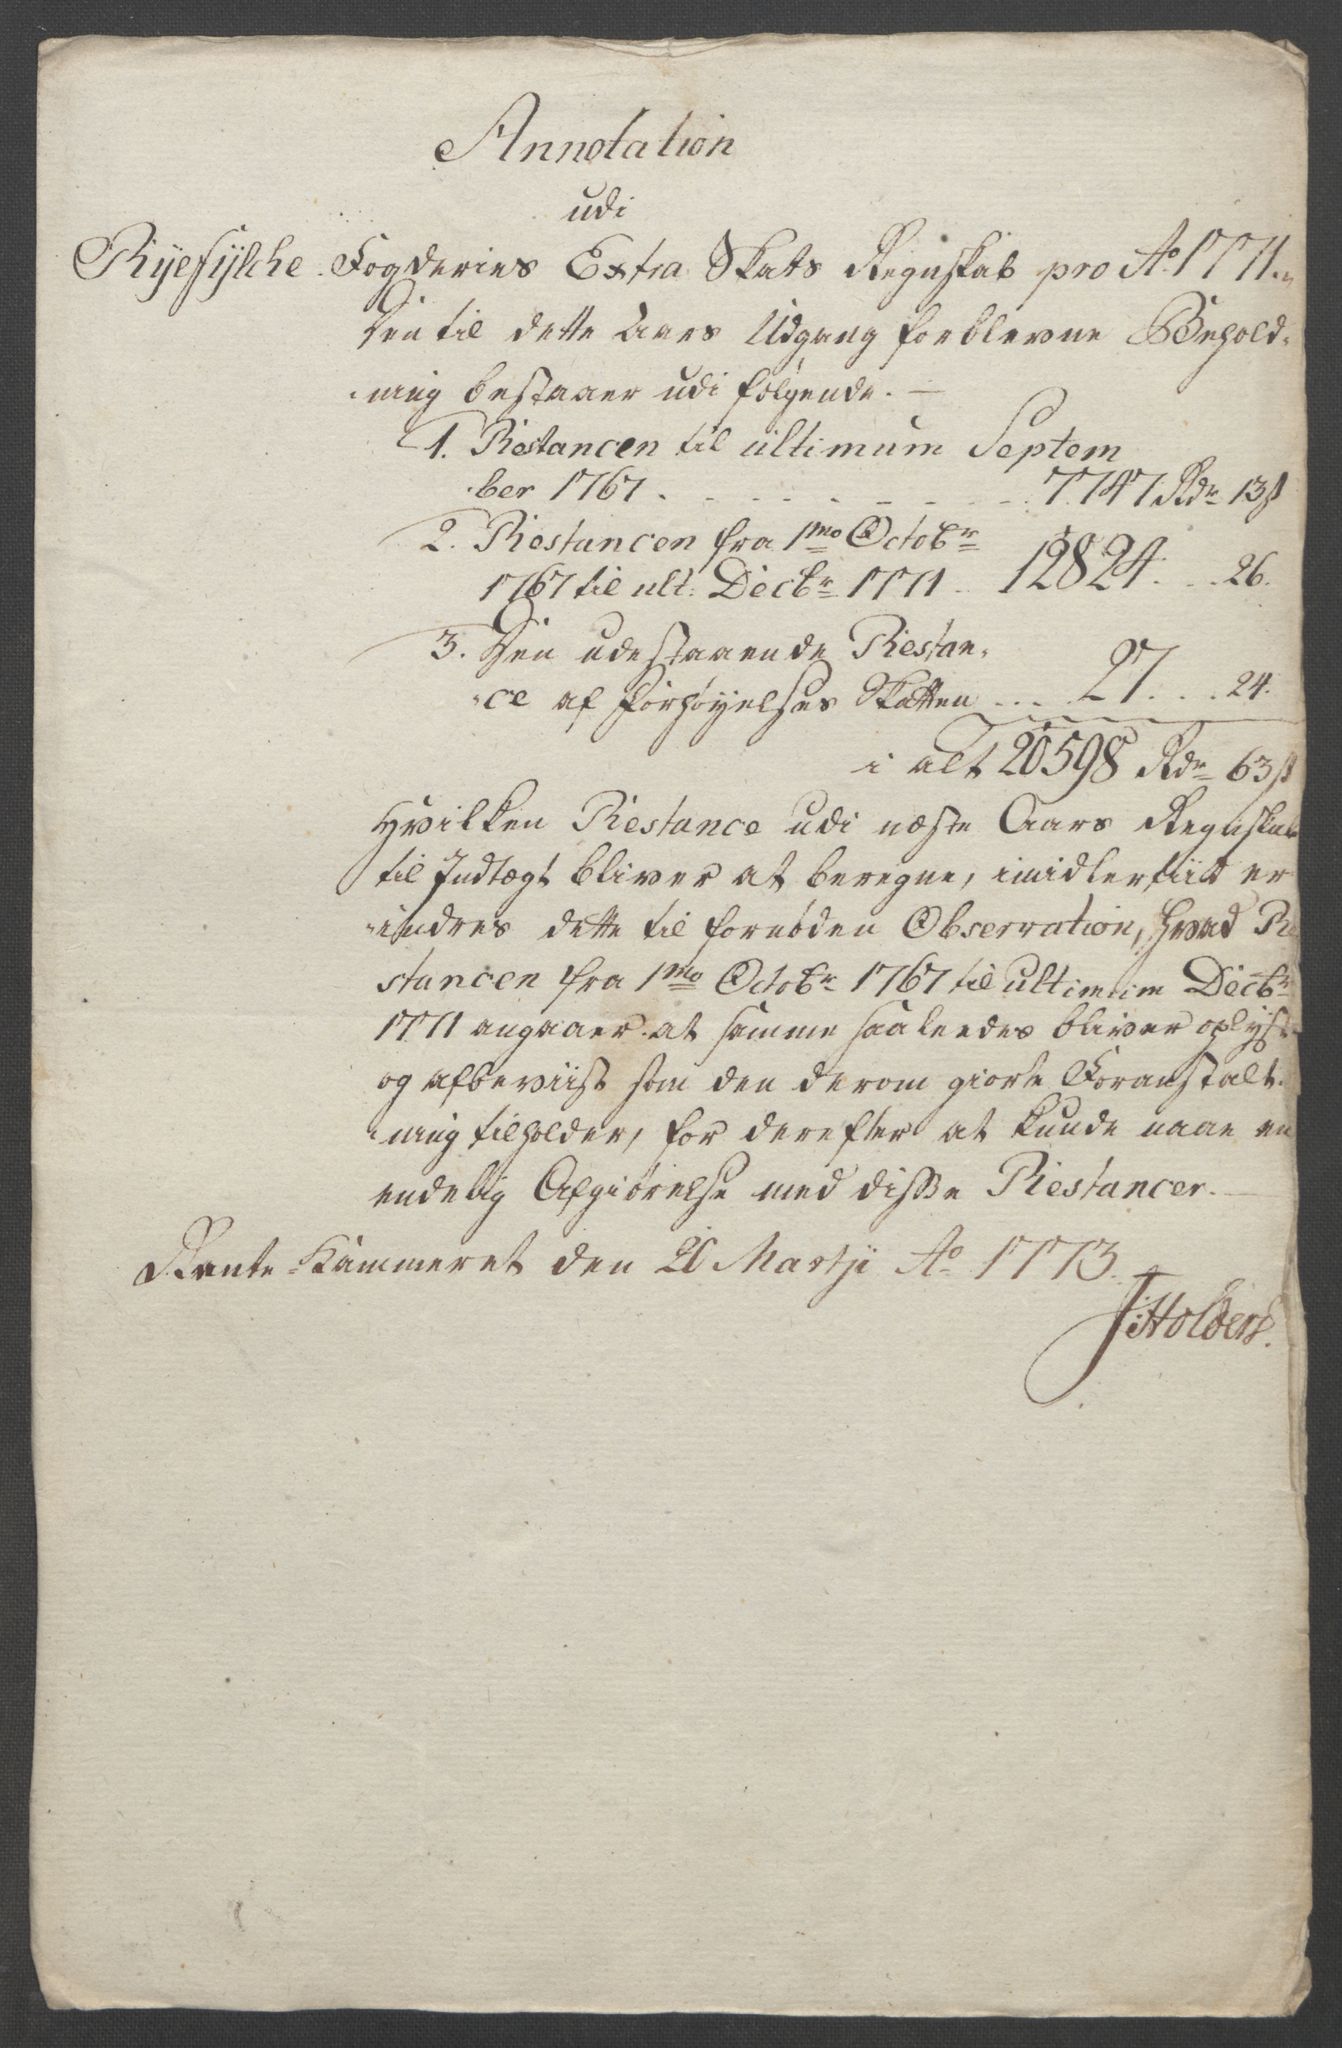 Annotation
udi
Ryefylche Fogderies Extra Skats Regnskab pro Ao. 1771.
Den til dette Aars Udgang forblevne Behold-
-ning bestaaer udi følgende. —
1. Restancen til ultimum Septem
-ber 1767 . - - - - - - - - 7747 Rdr 13 s
2. Restancen fra 1mo Octobr
1767 til ult: Decbr 1771 .. 12824 . . . 26.
3. Den udestaaende Restan-
-ce af Forhøyelses Skatten ... 27 . . . 24.
i alt 20598 Rdr 63 s
Hvilken Restance udi næste Aars Regnskab
til Indtægt bliver at beregne, imidlertiid er-
-indres dette til fornøden Observation, hvad Re
stancen fra 1mo Octobr 1767 til ultimum Decbr
1771 angaaer at samme saaledes bliver oplyst
og afbeviist som den derom giorte Foranstalt-
-ning tilholder, for derefter at kunde naae en
endelig Afgiørelse med disse Restancer. —
Rente-Kammeret den 20 Martji Ao 1773.
J: Holders.